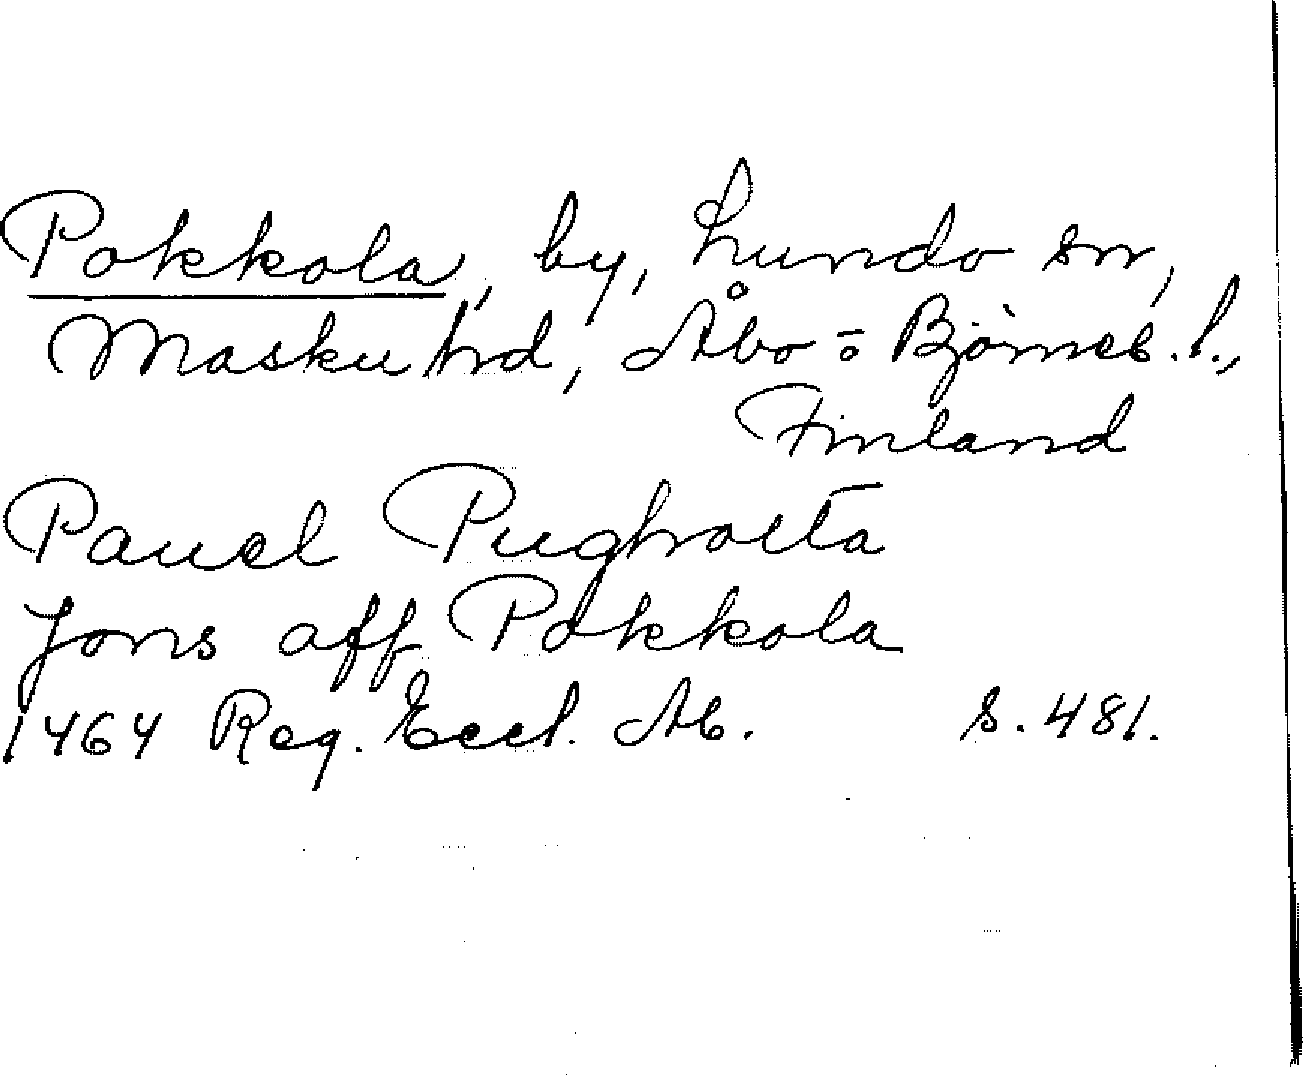 Pokkola, by, Lundo sn,
Masku hrd, Åbo-o Björneb. l.,
Finland
Pauel Pughoita
Jons aff Pokkola
1464 Reg. Eccl. Ab. s. 481.